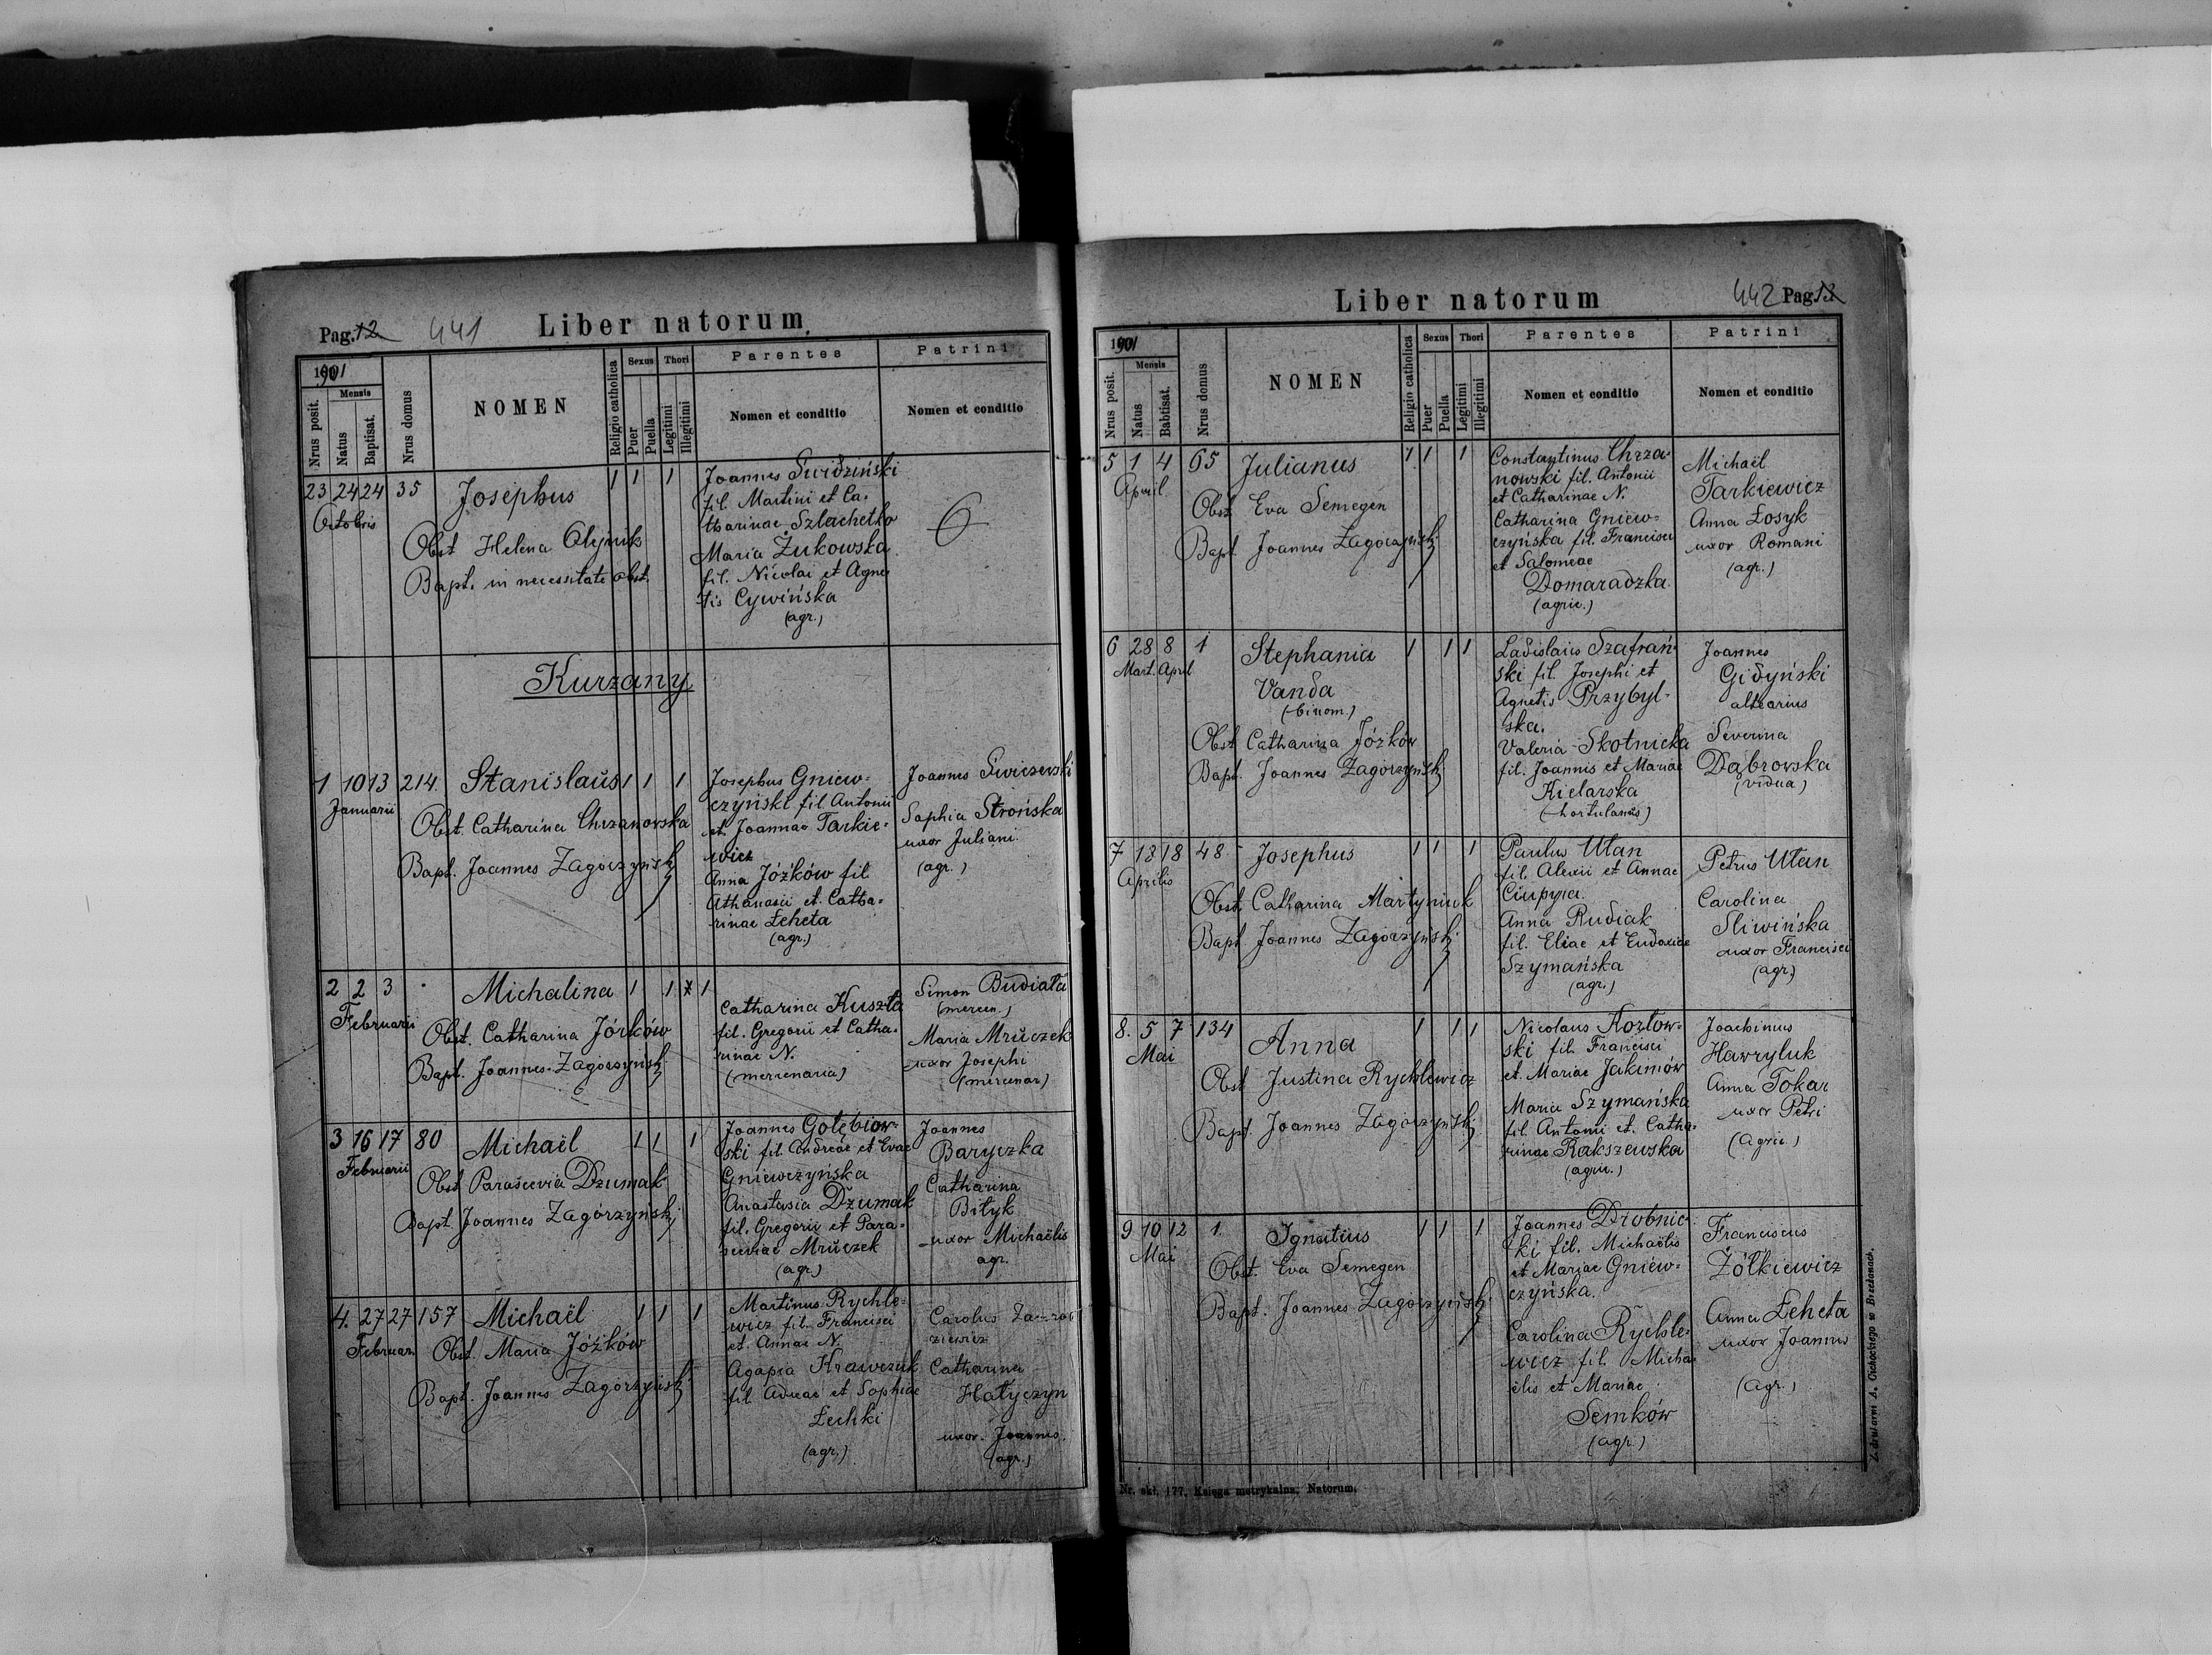 Pag. 12 441 Liber natorum
1901
Nrus posit.
Mensis
Natus
Baptisat.
Nrus domus
NOMEN
Religio catholica
Sexus
Puer
Puella
Thori
Legitimi
Illegitimi
Parentes
Nomen et conditio
Patrini
Nomen et conditio
23 24 24 35 Josephus 1 1 1
Octobris
Obst Helena Olejnik
Bapt. in necessitate obst.
Joannes Swidziński
fil. Martini et Ca-
tharinae Szlachetko
Maria Żukowska
fil. Nicolai et Agne
tis Cywińska
(agr.)
Kurzany
1 10 13 214. Stanislaus 1 1 1
Januarii
Obst. Catharina Chrzanowska
Bapt. Joannes Zagórzyński
Josephus Gniew-
czyński fil Antonii
et Joannae Tarkie-
wicz
Anna Jóźków fil
Athanasii et Catha-
rinae Łeheta
(agr.)
Joannes Swiczewski
Sophia Strońska
uxor Juliani
(agr.)
2 2 3 Michalina 1 1 1
Februarii
Obst. Catharina Jórków
Bapt. Joannes Zagórzyński
Catharina Kuszła
fil. Gregorii et Catha-
rinae N.
(mercenaria)
Simon Budiała
(mercen.)
Maria Mruczek
uxor Josephi
(mercenar)
3 16 17 80 Michaël 1 1 1
Februarii
Obst Parascevia Dzumak
Bapt. Joannes Zagórzyński
Joannes Gołębiow-
ski fil. Andreae et Evae
Gniewczyńska
Anastasia Dzumak
fil. Gregorii et Para-
sceviae Mruczek
(agr.)
Joannes
Baryczka
Catharina
Biłyk
uxor Michaëlis
agr.
4. 27 27 157 Michaël 1 1 1
Februar.
Obst. Maria Jóźków
Bapt. Joannes Zagórzyński
Martinus Rychle-
wicz fil. Francisci
et Annae N.
Agapia Krawczuk
fil. et Sophiae
Łechki
(agr.)
Carolus
ziewicz
Catharina
Hałyczyn
uxor. Joannis.
(agr.)
Liber natorum 442 Pag. 13
1901
Nrus posit.
Mensis
Natus
Babtisat.
Nrus domus
NOMEN
Religio catholica
Sexus
Puer
Puella
Thori
Legitimi
Illegitimi
Parentes
Nomen et conditio
Patrini
Nomen et conditio
5 1 4 65 Julianus 1 1 1
April
Obst Eva Semegen
Bapt Joannes Zagórzyński
Constantinus Chrza-
nowski fil. Antonii
et Catharinae N.
Catharina Gniew-
czyńska fil. Francisci
et Salomeae
Domaradzka.
(agric.)
Michaël
Tarkiewicz
Anna Łosyk
uxor Romani
(agr.)
6 28 8 1 Stephania 1 1 1
Mart. April
Vanda
(binom.)
Obst Catharina Jóźków
Bapt. Joannes Zagórzyński
Ladislaus Szafrań-
ski fil. Josephi et
Agnetis Przybyl-
ska.
Valeria Skotnicka
fil. Joannis et Mariae
Kielarska
(hortulanus)
Joannes
Gidyński
Severina
Dąbrowska
(vidua)
7 13 18 48 Josephus 1 1 1
Aprilis
Obst. Catharina Martyniuk
Bapt Joannes Zagórzyński
Paulus Ułan
fil. Alexii et Annae
Ciupyra.
Anna Rudiak
fil. Eliae et Eudoxiae
Szymańska
(agr.)
Petrus Ułan
Carolina
Sliwińska
uxor Francisci
(agr.)
8. 5 7 134 Anna 1 1 1
Mai
Obst Justina Rychlewicz
Bapt. Joannes Zagórzyński
Nicolaus Kozłow-
ski fil. Francisci
et. Mariae Jakimów
Maria Szymańska
fil. Antonii et. Catha-
rinae Rakszewska
(agric.)
Joachimus
Hawryluk
Anna Tokar
uxor Petri
(Agric.)
9 10 12 1. Ignatius 1 1 1
Mai
Obst. Eva Semegen
Bapt. Joannes Zagórzyński
Joannes Drobnic-
ki fil. Michaëlis
et Mariae Gniew-
czyńska.
Carolina Rychle-
wicz fil. Micha-
ëlis et Mariae
Semków
(agr.)
Franciscus
Żółkiewicz
Anna Łeheta
uxor Joannis
(Agr.)
Nr. skł. 177. Księga metrykalna, Natorum.
Z drukarni A. Cichockiego w Brzeżanach.